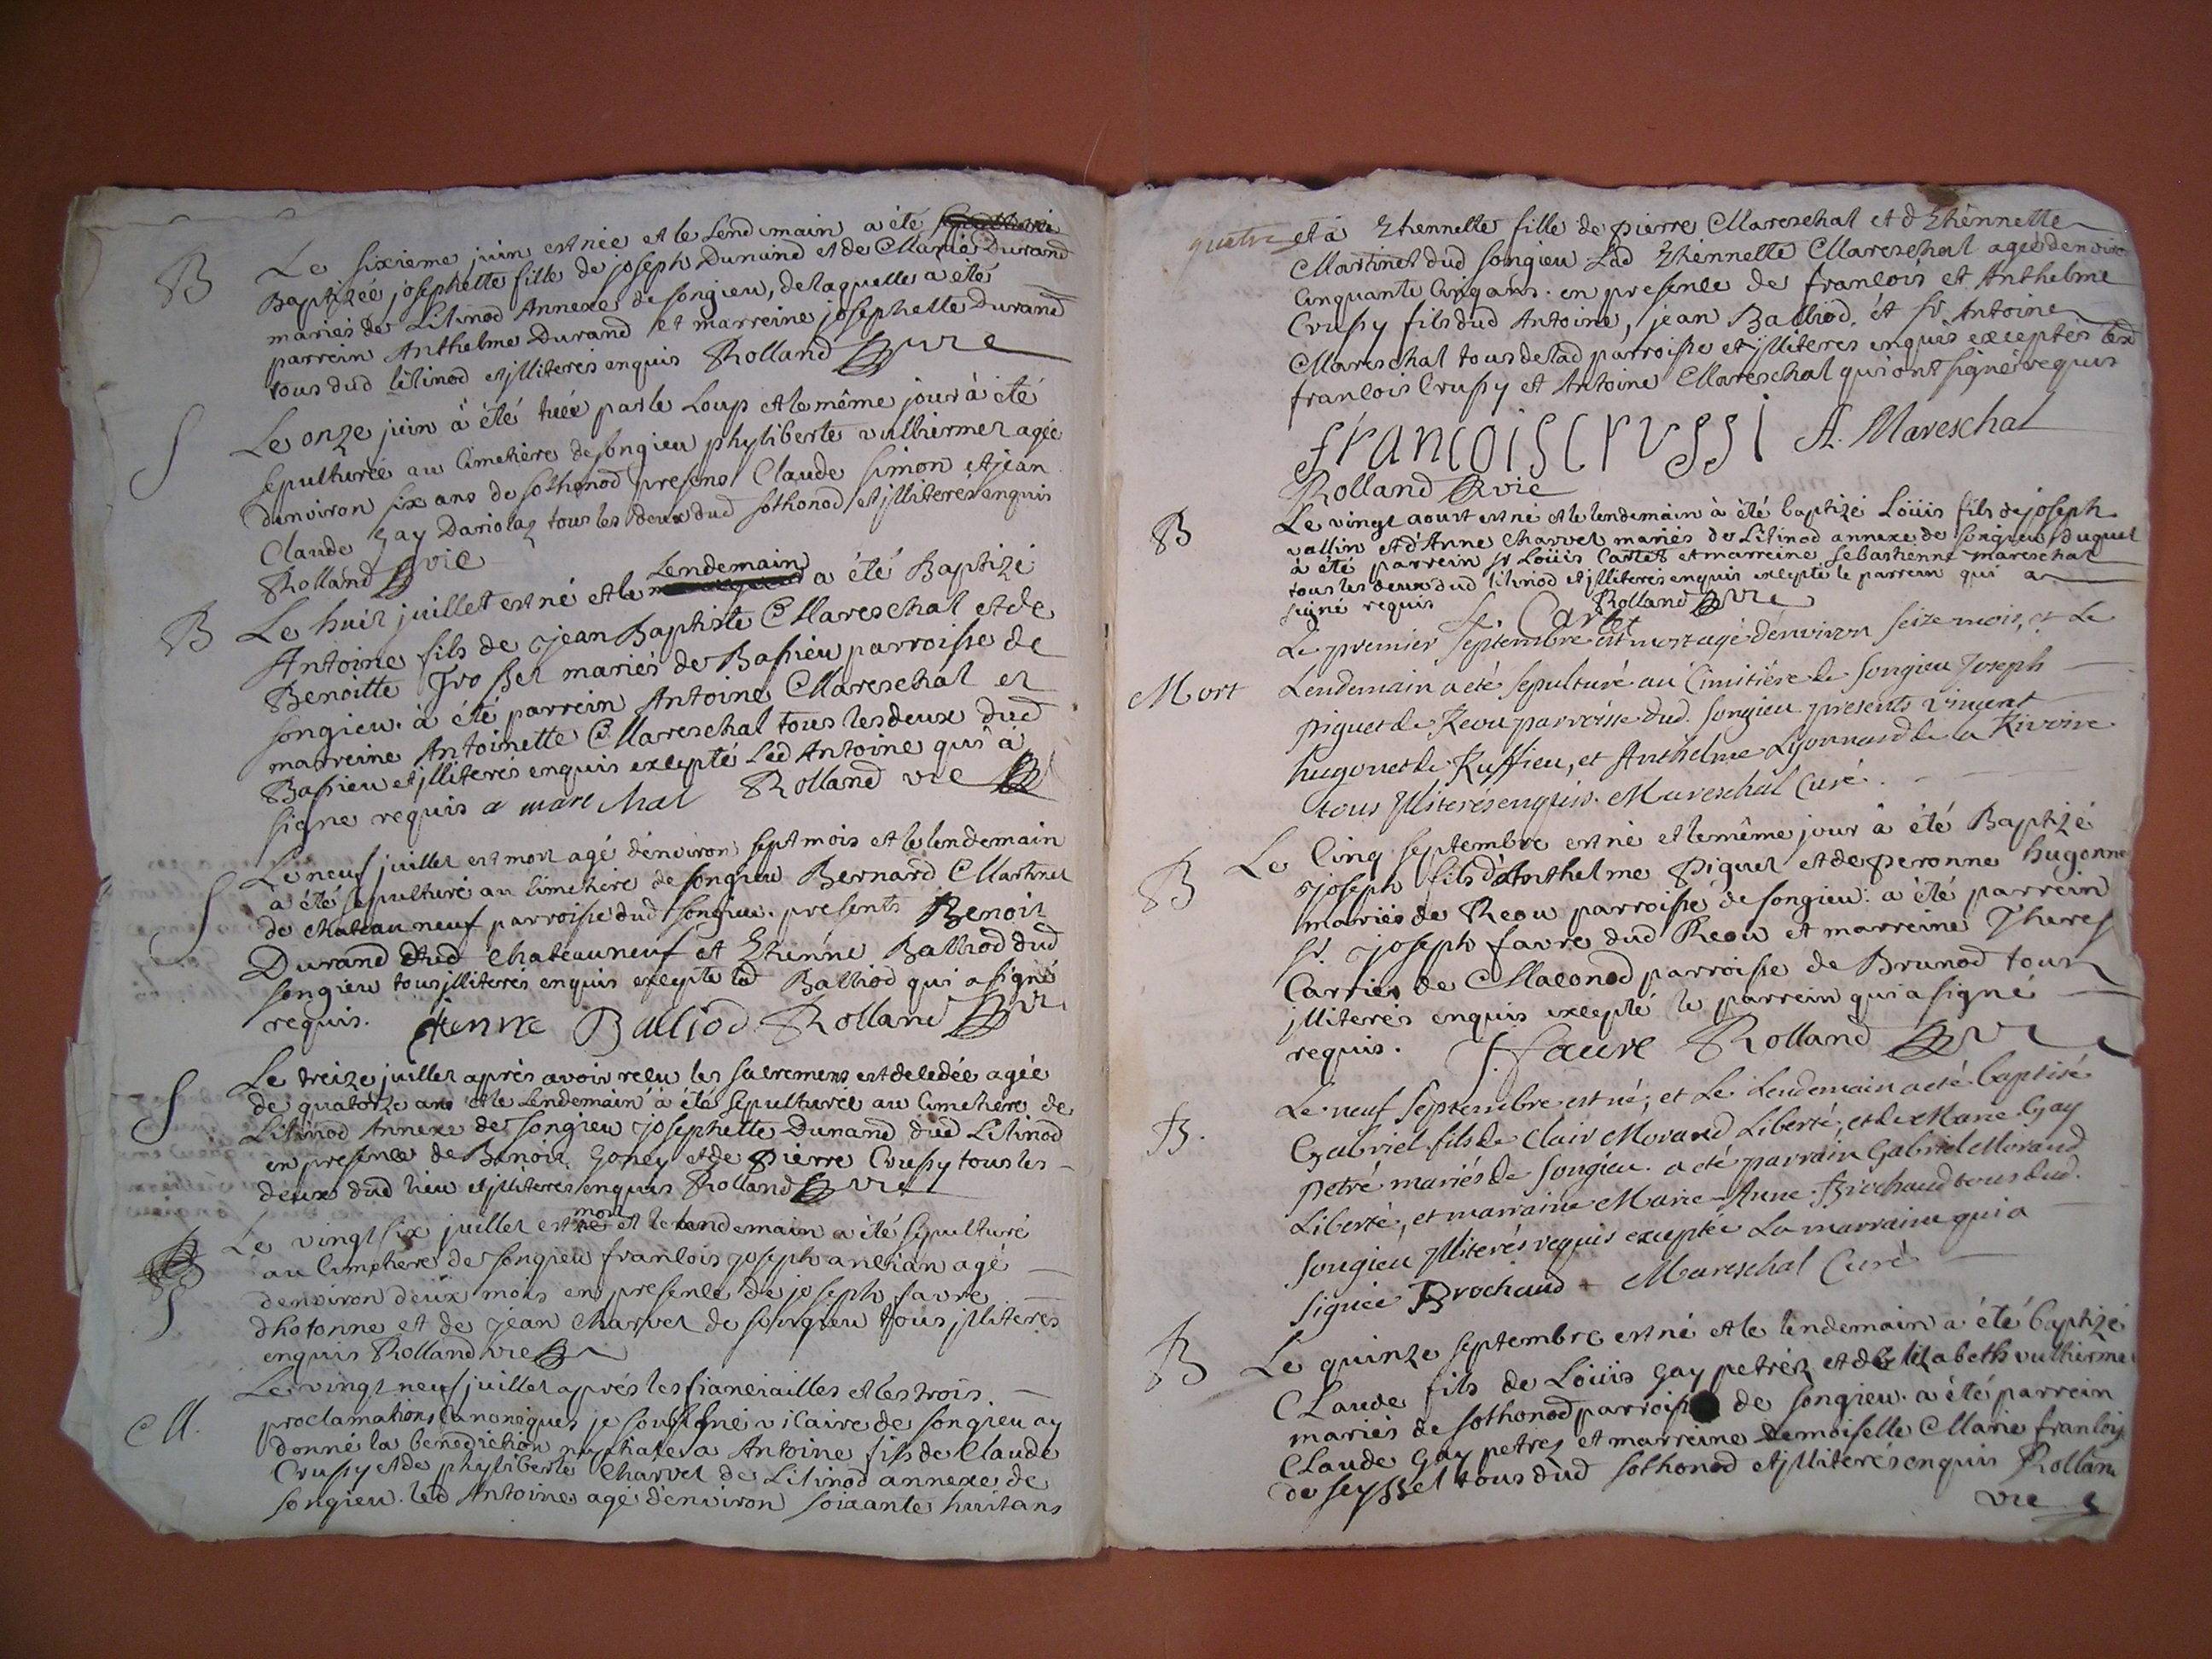 B
Le sixieme juin est née et le lendemain a été
Baptizée josephette fille de joseph Dunand et de Marie Durand
mariés de Lilinod Annexe de songieu, de laquelle a été
parrein Anthelme Durand et marreine josephette Durand
tous dud lilinod et jlliterés enquis Rolland vic
S
Le onze juin à été tuée par le Loup et le même jour à été
sepulturée au cimetière de songieu phyliberte vulliermet agée
denviron six ans de sothonod presens Claude simon et jean
Claude Gay Dariolaz tous les deux dud sothonod et jlliterés enquis
Rolland vic
B
Lendemain
Le huit juillet est né et le a été Baptizé
Antoine fils de jean Baptiste Mareschal et de
Benoitte mariés de Bassieu parroisse de
songieu. à été parrein Antoine Mareschal et
marreine Antoinette Mareschal tous les deux dud
Bassieu et jlliterés enquis excepté led Antoine qui à
signe requis a mare chal Rolland vic
S
Le neuf juillet est mort agé denviron sept mois et le lendemain
a été sepulturé au cimetière de songieu Bernard Martinet
de chateauneuf parroisse dud songieu. presents Benoit
Durand dud chateauneuf et Etienne Balliod dud
songieu tous jlliterés enquis excepte led Balliod qui a signé
requis. étienne Balliod Rolland vic
S
Le treize juillet aprés avoir recu les sacremens est decedée agée
de quatorze ans et le Lendemain à été sepulturée au cimetière de
Lilinod Annexe de songieu josephette Dunand dud Lilinod
en presence de Benoit Goney et de pierre Crussy tous les
deux dud lieu et jlliterés enquis Rolland vic
S
mort
Le vingt six juillet est né et le lendemain a été sepulturé
au cimetière de songieu francois joseph ancian agé
denviron deux mois en presence de joseph favre
dhotonne et de jean charvet de songieu tous jlliterés
enquis Rolland vic
M.
Le vingt neuf juillet aprés les fiancialles et les trois
proclamations canoniques je soussigné vicaire de songieu ay
donné la benediction nuptiale a Antoine fils de Claude
Crussy et de phyliberte Charvet de Lilinod annexe de
songieu. led Antoine agé denviron soixante huit ans
quatre
et à Etiennette fille de pierre Mareschal et d Etiennette
Martinet dud songieu Lad Etiennette Mareschal agée denviron
cinquante cinq ans. en presence de francois et Anthelme
Crussy fils dud Antoine, jean Balliod, et sr Antoine
Mareschal tous de lad parroisse et jlliterés enquis exceptés lesd
francois Crussy et Antoine Mareschal qui ont signé requis
francois crussi A. Mareschal
Rolland vic
B
Le vingt aoust est né et le lendemain à été baptizé Loüis fils de joseph
vallin et d'Anne charvet mariés de Lilinod annexe de songieu duquel
à été parrein sr Loüis Cartet et marreine sebastienne mareschal
tous les deux dud lilinod et jlliterés enquis excepté le parrein qui a
signé requis Rolland vic
L. Cartet
Mort
Le premier Septembre est mort agé denviron seize mois, et Le
Lendemain a eté sepulturé au Cimitière de Songieu Joseph
piguet de Reou parroisse dud. Songieu presents vincent
hugonet de Ruffieu, et Anthelme Lyonnard de la Rivoire
tous Jlliterés enquis. Mareschal Curé.
B
Le Cinq septembre est né et le même jour à été Baptizé
joseph fils d'Anthelme piguet et de peronne hugonne
mariés de Reou parroisse de songieu: a été parrein
sr. joseph favre dud Reou et marreine Theres
Carrier de Maconod parroisse de Brunod tous
jlliterés enquis excepté le parrein qui a signé
requis. J. favre Rolland vic
B.
Le neuf Septembre est né, et Le Lendemain a eté baptisé
Gabriel fils de Clair Morand Liberté, et de Marie Gay
petré mariés de Songieu. a eté parrain Gabriel Morand
Liberté, et marraine Marie-Anne Brochaud tous dud.
Songieu Jlliterés requis exceptée La marraine qui a
signée Brochaud Mareschal Curé
B
Le quinze septembre est né et le lendemain a été baptizé
Claude fils de Loüis Gay petréz et de Elizabeth vulliermet
mariés de sothonod parroisse de songieu. a été parrein
Claude Gay petrez et marreine demoiselle Marie francois
de seyssel tous dud sothonod et jlliterés enquis Rolland
vic